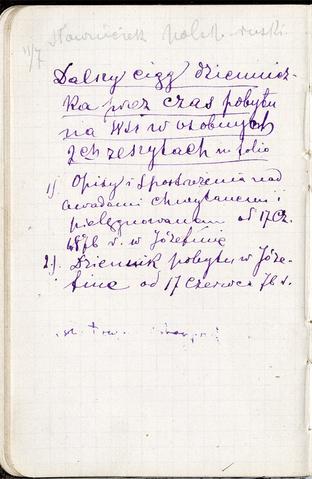 11/7 Słowniczek polsk. ruski.
Dalszy ciąg dziennicz-
ka przez czas pobytu
na wsi w osobnych
2ch zeszytach in folio
1). Opisy i spostrzeżenia nad
owadami chwytanemi i
pielęgnowanem od 17 Cz.
1876 r. w Józefinie
2). Dziennik pobytu w Józe-
finie od 17 Czerwca 76 r.